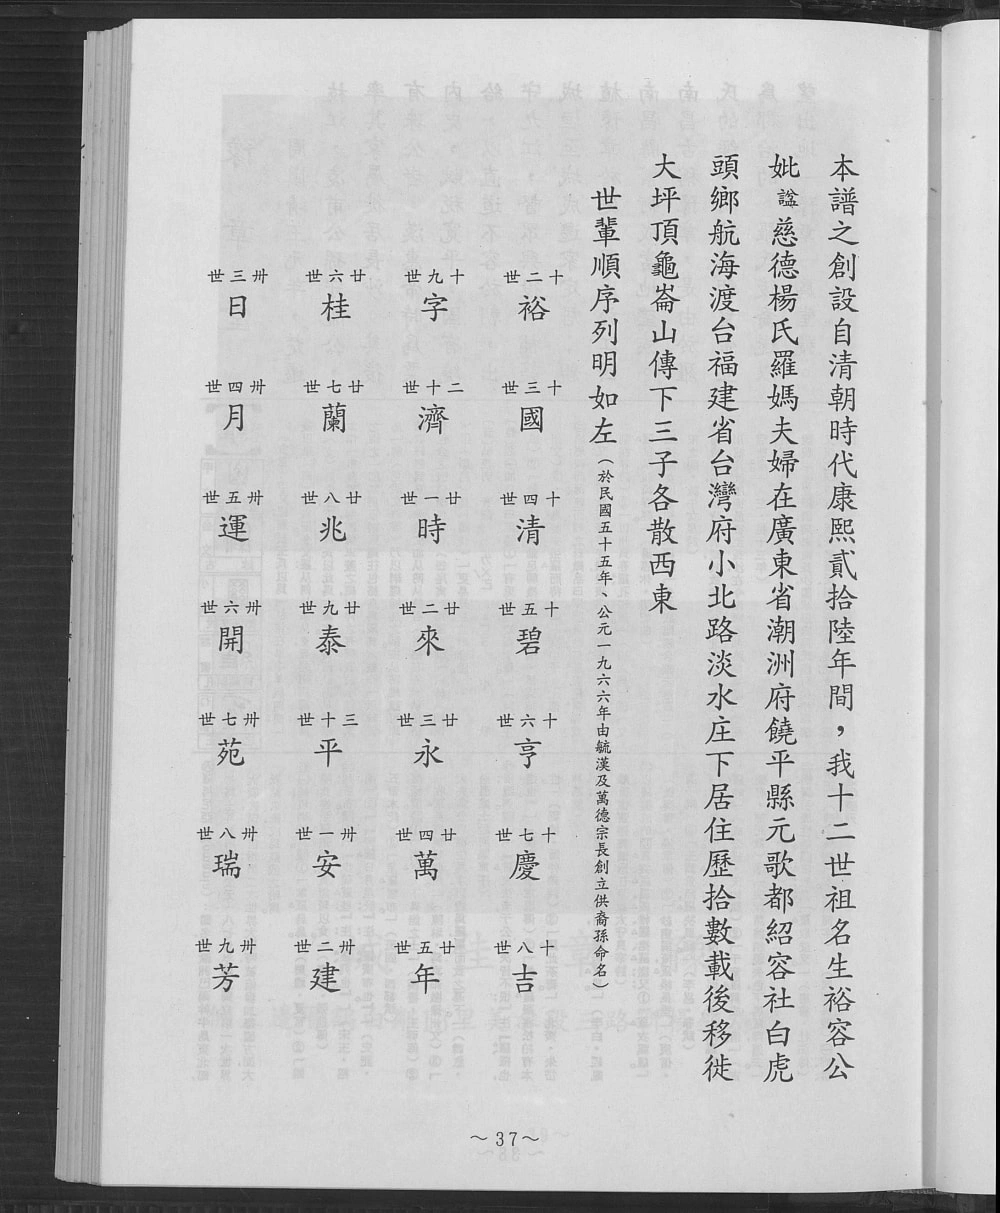 本譜之創設自清朝時代康熙貳拾陸年間，我十二世祖名生裕容公
妣諡慈德楊氏羅媽夫婦在廣東省潮洲府饒平縣元歌都紹容社白虎
頭鄉航海渡台福建省台灣府小北路淡水庄下居住歷拾數載後移徙
大坪頂龜崙山傳下三子各散西東
世輩順序列明如左（於民國五十五年、公元一九六六年由毓漢及萬德宗長創立供裔孫命名）
十二世 裕 十三世 國 十四世 清 十五世 碧 十六世 亨 十七世 慶 十八世 吉
十九世 字 二十世 濟 廿一世 時 廿二世 來 廿三世 永 廿四世 萬 廿五世 年
廿六世 桂 廿七世 蘭 廿八世 兆 廿九世 泰 三十世 平 卅一世 安 卅二世 建
卅三世 日 卅四世 月 卅五世 運 卅六世 開 卅七世 苑 卅八世 瑞 卅九世 芳
～37～